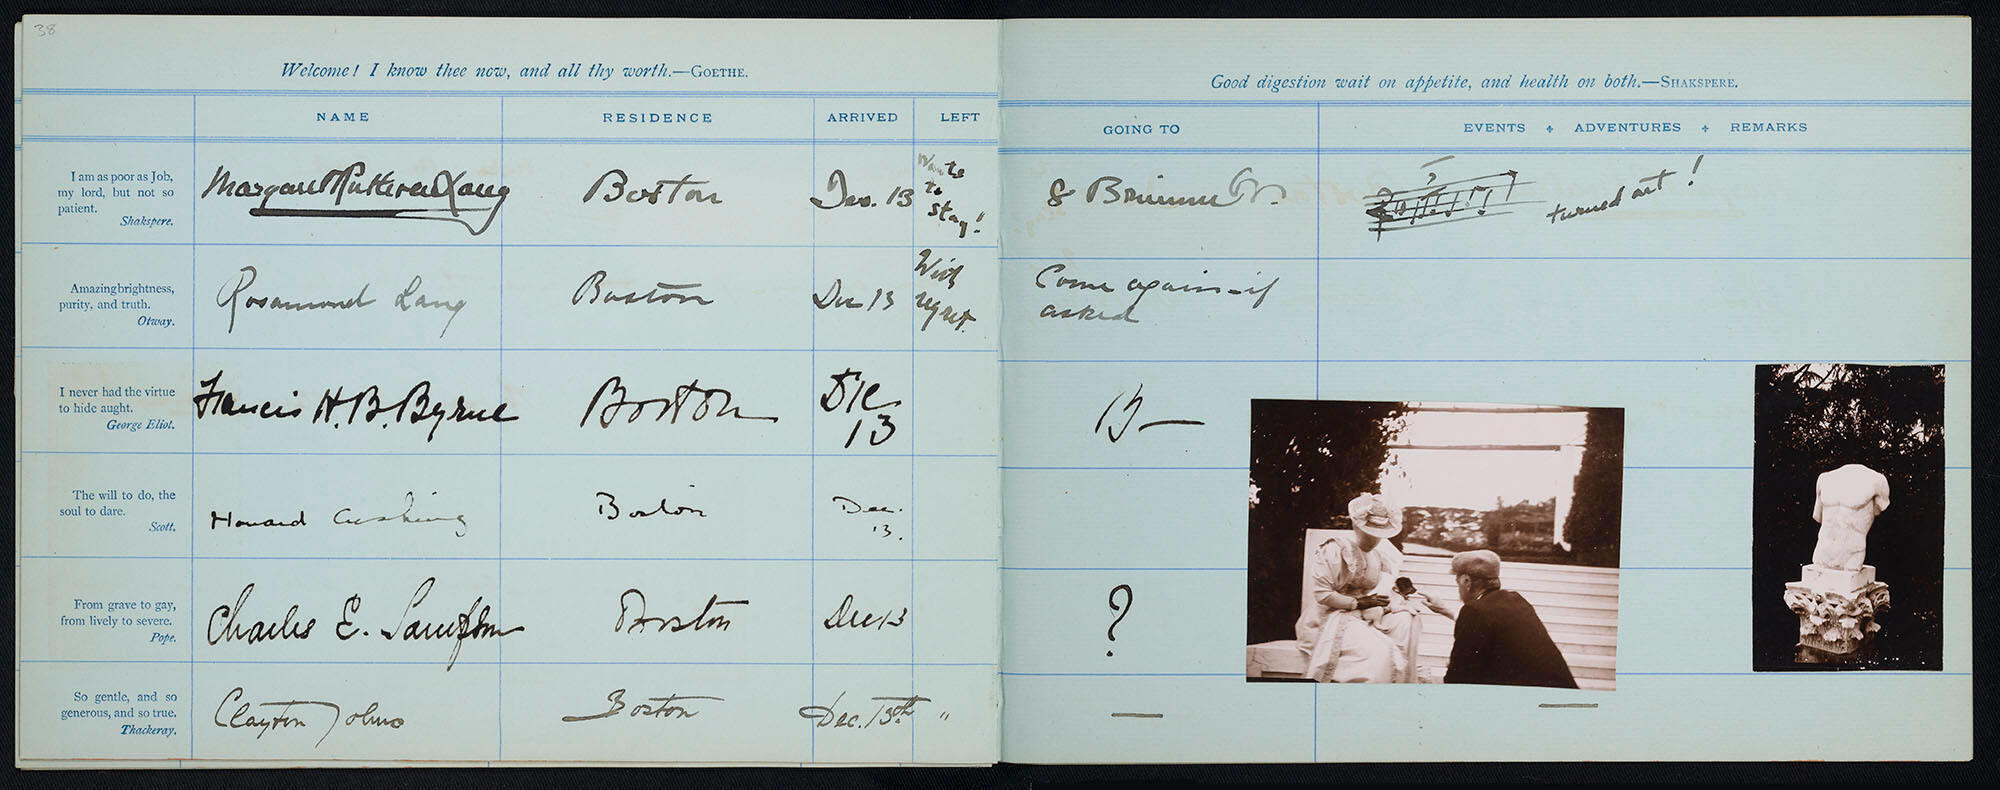 38
Welcome! I know thee now, and all thy worth.—GOETHE.
NAME RESIDENCE ARRIVED LEFT
I am as poor as Job,
my lord, but not so
patient.
Shakspere.
Margaret Ruthven Lang Boston Dec. 13 Wants
to
stay!
Amazing brightness,
purity, and truth.
Otway.
Rosamond Lang Boston Dec 13 With
regret.
I never had the virtue
to hide aught.
George Eliot.
Francis H. B. Byrne Boston Dec
13
The will to do, the
soul to dare.
Scott.
Howard Cushing Boston Dec.
13.
From grave to gay,
from lively to severe.
Pope.
Charles E. Sampson Boston Dec 13
So gentle, and so
generous, and so true.
Thackeray.
Clayton Johns Boston Dec. 13th "
Good digestion wait on appetite, and health on both.—SHAKSPERE.
GOING TO EVENTS ADVENTURES REMARKS
8 Brimmer turned out!
Come again—if
asked
?